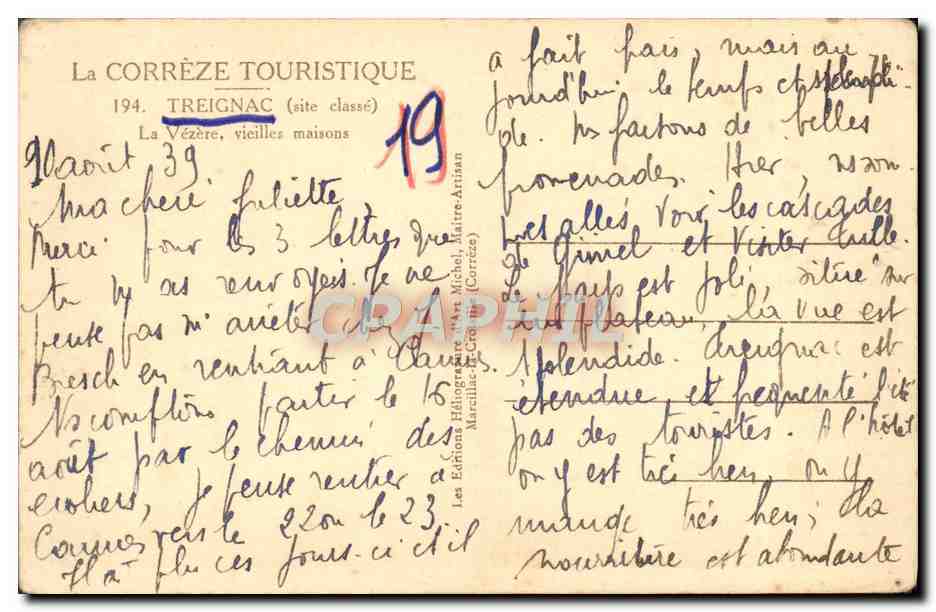 La CORRÈZE TOURISTIQUE
194. TREIGNAC (site classé)
La Vézère, vieilles maisons
19
août 39
Ma chère Juliette,
Merci pour les 3 lettres que
tu m'as renvoyés. Je ne
pense pas m'arrêter chez
en rentrant à Cannes.
Ns comptons partir le 16
août par le chemin des
écoliers, je pense rentrer à
Cannes vers le 22 ou le 23.
Il a plu ces jours-ci et il
Les Editions Héliogravure d'Art Michel, Maître-Artisan
Marcillac-la-Croisille (Corrèze)
CPAPHIL
a fait frais, mais au
jourd'hui le temps est splendi-
de. Ns faisons de belles
promenades. Hier, ns som
mes allés voir les cascades
de Gimel et visiter Tulle.
Le pays est joli, situé sur
un plateau, la vue est
splendide. Treignac est
étendue et fréquenté l'été
par des touristes. A l'hôtel
on y est très bien, on y
mange très bien, la
nourriture est abondante